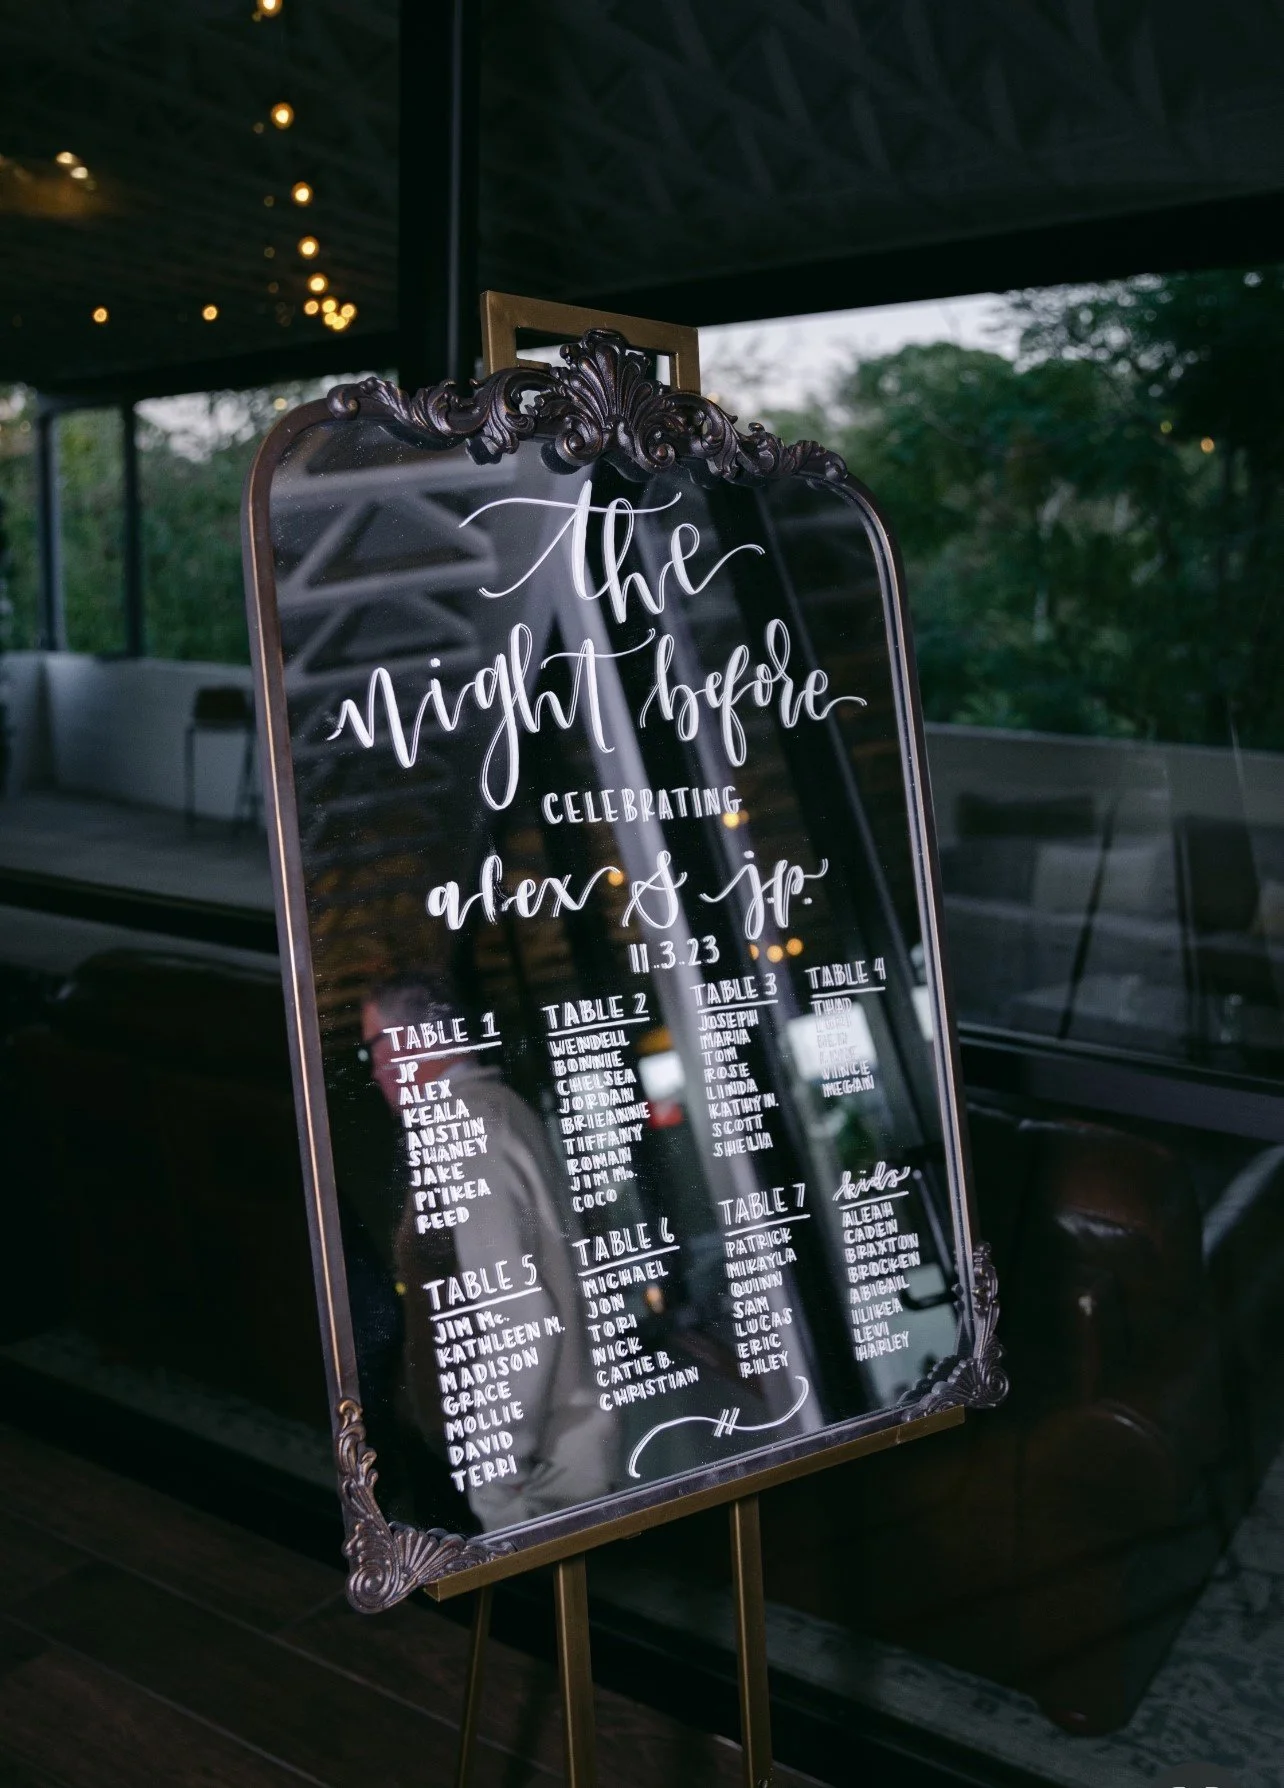 the
night before
CELEBRATING
alex & j.p.
11.3.23
TABLE 1
JP
ALEX
KEALA
AUSTIN
SHANEY
JAKE
PI'IKEA
REED
TABLE 2
WENDELL
BONNIE
CHELSEA
JORDAN
BRIEANNE
TIFFANY
ROMAN
JIM Ma.
COCO
TABLE 3
JOSEPH
MARIA
TOM
ROSE
LINDA
KATHY N.
SCOTT
SHELIA
TABLE 4
THAD
VINCE
MEGAN
TABLE 5
JIM Mc.
KATHLEEN M.
MADISON
GRACE
MOLLIE
DAVID
TERRI
TABLE 6
MICHAEL
JON
TORI
NICK
CATIE B.
CHRISTIAN
TABLE 7
PATRICK
MIKAYLA
QUINN
SAM
LUCAS
ERIC
RILEY
kids
ALEAH
CADEN
BRAXTON
BROCKEN
ABIGAIL
ILIKEA
LEVI
HARLEY